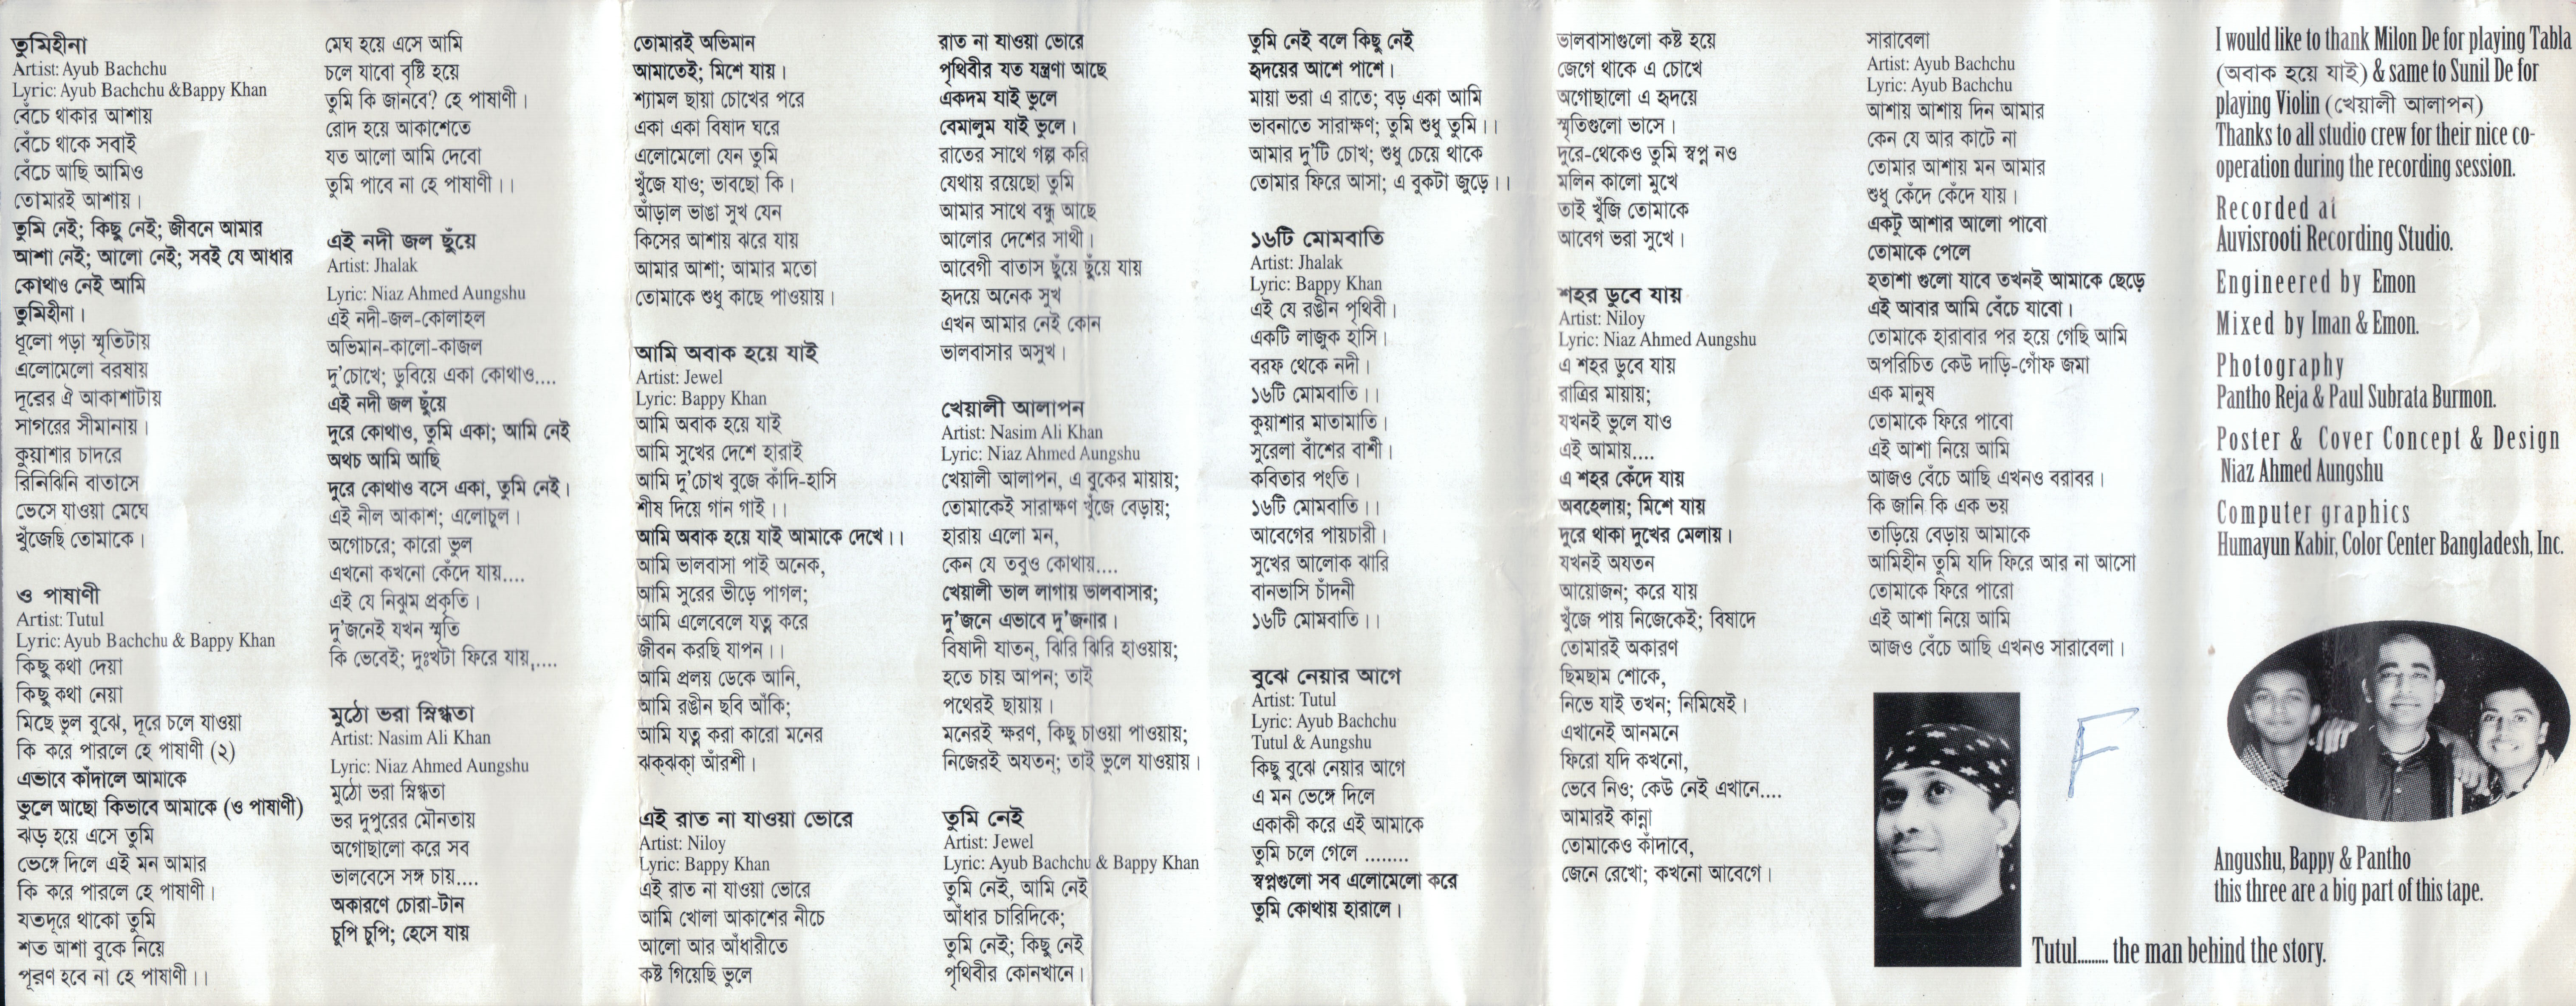 তুমিহীনা
Artist: Ayub Bachchu
Lyric: Ayub Bachchu &Bappy Khan
বেঁচে থাকার আশায়
বেঁচে থাকে সবাই
বেঁচে আছি আমিও
তোমারই আশায়।
তুমি নেই; কিছু নেই; জীবনে আমার
আশা নেই; আলো নেই; সবই যে আধার
কোথাও নেই আমি
তুমিহীনা।
ধূলো পড়া স্মৃতিটায়
এলোমেলো বরষায়
দূরের ঐ আকাশটায়
সাগরের সীমানায়।
কুয়াশার চাদরে
রিনিঝিনি বাতাসে
ভেসে যাওয়া মেঘে
খুঁজেছি তোমাকে।
ও পাষাণী
Artist: Tutul
Lyric: Ayub Bachchu & Bappy Khan
কিছু কথা দেয়া
কিছু কথা নেয়া
মিছে ভুল বুঝে, দূরে চলে যাওয়া
কি করে পারলে হে পাষাণী (২)
এভাবে কাঁদালে আমাকে
ভুলে আছো কিভাবে আমাকে (ও পাষাণী)
ঝড় হয়ে এসে তুমি
ভেঙ্গে দিলে এই মন আমার
কি করে পারলে হে পাষাণী।
যতদূরে থাকো তুমি
শত আশা বুকে নিয়ে
পূরণ হবে না হে পাষাণী।।
মেঘ হয়ে এসে আমি
চলে যাবো বৃষ্টি হয়ে
তুমি কি জানবে? হে পাষাণী।
রোদ হয়ে আকাশেতে
যত আলো আমি দেবো
তুমি পাবে না হে পাষাণী।।
এই নদী জল ছুঁয়ে
Artist: Jhalak
Lyric: Niaz Ahmed Aungshu
এই নদী-জল-কোলাহল
অভিমান-কালো-কাজল
দু'চোখে; ডুবিয়ে একা কোথাও....
এই নদী জল ছুঁয়ে
দুরে কোথাও, তুমি একা; আমি নেই
অথচ আমি আছি
দুরে কোথাও বসে একা, তুমি নেই।
এই নীল আকাশ; এলোচুল।
অগোচরে; কারো ভুল
এখনো কখনো কেঁদে যায়....
এই যে নিঝুম প্রকৃতি।
দু'জনেই যখন স্মৃতি
কি ভেবেই; দুঃখটা ফিরে যায়,....
মুঠো ভরা স্নিগ্ধতা
Artist: Nasim Ali Khan
Lyric: Niaz Ahmed Aungshu
মুঠো ভরা স্নিগ্ধতা
ভর দুপুরের মৌনতায়
অগোছালো করে সব
ভালবেসে সঙ্গ চায়....
অকারণে চোরা-টান
চুপি চুপি; হেসে যায়
তোমারই অভিমান
আমাতেই; মিশে যায়।
শ্যামল ছায়া চোখের পরে
একা একা বিষাদ ঘরে
এলোমেলো যেন তুমি
খুঁজে যাও; ভাবছো কি।
আঁড়াল ভাঙা সুখ যেন
কিসের আশায় ঝরে যায়
আমার আশা; আমার মতো
তোমাকে শুধু কাছে পাওয়ায়।
আমি অবাক হয়ে যাই
Artist: Jewel
Lyric: Bappy Khan
আমি অবাক হয়ে যাই
আমি সুখের দেশে হারাই
আমি দু'চোখ বুজে কাঁদি-হাসি
শীষ দিয়ে গান গাই।।
আমি অবাক হয়ে যাই আমাকে দেখে।।
আমি ভালবাসা পাই অনেক,
আমি সুরের ভীড়ে পাগল;
আমি এলেবেলে যত্ন করে
জীবন করছি যাপন।।
আমি প্রলয় ডেকে আনি,
আমি রঙীন ছবি আঁকি;
আমি যত্ন করা কারো মনের
ঝক্‌ঝকা্ আঁরশী।
এই রাত না যাওয়া ভোরে
Artist: Niloy
Lyric: Bappy Khan
এই রাত না যাওয়া ভোরে
আমি খোলা আকাশের নীচে
আলো আর আঁধারীতে
কষ্ট গিয়েছি ভুলে
রাত না যাওয়া ভোরে
পৃথিবীর যত যন্ত্রণা আছে
একদম যাই ভুলে
বেমালুম যাই ভুলে।
রাতের সাথে গল্প করি
যেথায় রয়েছো তুমি
আমার সাথে বন্ধু আছে
আলোর দেশের সাথী।
আবেগী বাতাস ছুঁয়ে ছুঁয়ে যায়
হৃদয়ে অনেক সুখ
এখন আমার নেই কোন
ভালবাসার অসুখ।
খেয়ালী আলাপন
Artist: Nasim Ali Khan
Lyric: Niaz Ahmed Aungshu
খেয়ালী আলাপন, এ বুকের মায়ায়;
তোমাকেই সারাক্ষণ খুঁজে বেড়ায়;
হারায় এলো মন,
কেন যে তবুও কোথায়....
খেয়ালী ভাল লাগায় ভালবাসার;
দু'জনে এভাবে দু'জনার।
বিষাদী যাতন্, ঝিরি ঝিরি হাওয়ায়;
হতে চায় আপন; তাই
পথেরই ছায়ায়।
মনেরই ক্ষরণ, কিছু চাওয়া পাওয়ায়;
নিজেরই অযতন্; তাই ভুলে যাওয়ায়।
তুমি নেই
Artist: Jewel
Lyric: Ayub Bachchu & Bappy Khan
তুমি নেই, আমি নেই
আঁধার চারিদিকে;
তুমি নেই; কিছু নেই
পৃথিবীর কোনখানে।
তুমি নেই বলে কিছু নেই
হৃদয়ের আশে পাশে।
মায়া ভরা এ রাতে; বড় একা আমি
ভাবনাতে সারাক্ষণ; তুমি শুধু তুমি।।
আমার দু'টি চোখ; শুধু চেয়ে থাকে
তোমার ফিরে আসা; এ বুকটা জুড়ে।।
১৬টি মোমবাতি
Artist: Jhalak
Lyric: Bappy Khan
এই যে রঙীন পৃথিবী।
একটি লাজুক হাসি।
বরফ থেকে নদী।
১৬টি মোমবাতি।।
কুয়াশার মাতামাতি।
সুরেলা বাঁশের বাশী।
কবিতার পংতি।
১৬টি মোমবাতি।।
আবেগের পায়চারী।
সুখের আলোক ঝারি
বানভাসি চাঁদনী
১৬টি মোমবাতি।।
বুঝে নেয়ার আগে
Artist: Tutul
Lyric: Ayub Bachchu
Tutul & Aungshu
কিছু বুঝে নেয়ার আগে
এ মন ভেঙ্গে দিলে
একাকী করে এই আমাকে
তুমি চলে গেলে ........
স্বপ্নগুলো সব এলোমেলো করে
তুমি কোথায় হারালে।
ভালবাসাগুলো কষ্ট হয়ে
জেগে থাকে এ চোখে
অগোছালো এ হৃদয়ে
স্মৃতিগুলো ভাসে।
দুরে-থেকেও তুমি স্বপ্ন নও
মলিন কালো মুখে
তাই খুঁজি তোমাকে
আবেগ ভরা সুখে।
শহর ডুবে যায়
Artist: Niloy
Lyric: Niaz Ahmed Aungshu
এ শহর ডুবে যায়
রাত্রির মায়ায়;
যখনই ভুলে যাও
এই আমায়....
এ শহর কেঁদে যায়
অবহেলায়; মিশে যায়
দুরে থাকা দুখের মেলায়।
যখনই অযতন
আয়োজন; করে যায়
খুঁজে পায় নিজেকেই; বিষাদে
তোমারই অকারণ
ছিমছাম শোকে,
নিভে যাই তখন; নিমিষেই।
এখানেই আনমনে
ফিরো যদি কখনো,
ভেবে নিও; কেউ নেই এখানে....
আমারই কান্না
তোমাকেও কাঁদাবে,
জেনে রেখো; কখনো আবেগে।
সারাবেলা
Artist: Ayub Bachchu
Lyric: Ayub Bachchu
আশায় আশায় দিন আমার
কেন যে আর কাটে না
তোমার আশায় মন আমার
শুধু কেঁদে কেঁদে যায়।
একটু আশার আলো পাবো
তোমাকে পেলে
হতাশা গুলো যাবে তখনই আমাকে ছেড়ে
এই আবার আমি বেঁচে যাবো।
তোমাকে হারাবার পর হয়ে গেছি আমি
অপরিচিত কেউ দাড়ি-গোঁফ জমা
এক মানুষ
তোমাকে ফিরে পাবো
এই আশা নিয়ে আমি
আজও বেঁচে আছি এখনও বরাবর।
কি জানি কি এক ভয়
তাড়িয়ে বেড়ায় আমাকে
আমিহীন তুমি যদি ফিরে আর না আসো
তোমাকে ফিরে পারো
এই আশা নিয়ে আমি
আজও বেঁচে আছি এখনও সারাবেলা।
F
Tutul......... the man behind the story.
I would like to thank Milon De for playing Tabla
(অবাক হয়ে যাই) & same to Sunil De for
playing Violin (খেয়ালী আলাপন)
Thanks to all studio crew for their nice co-
operation during the recording session.
Recorded at
Auvisrooti Recording Studio.
Engineered by Emon
Mixed by Iman & Emon.
Photography
Pantho Reja & Paul Subrata Burmon.
Poster & Cover Concept & Design
Niaz Ahmed Aungshu
Computer graphics
Humayun Kabir, Color Center Bangladesh, Inc.
Angushu, Bappy & Pantho
this three are a big part of this tape.